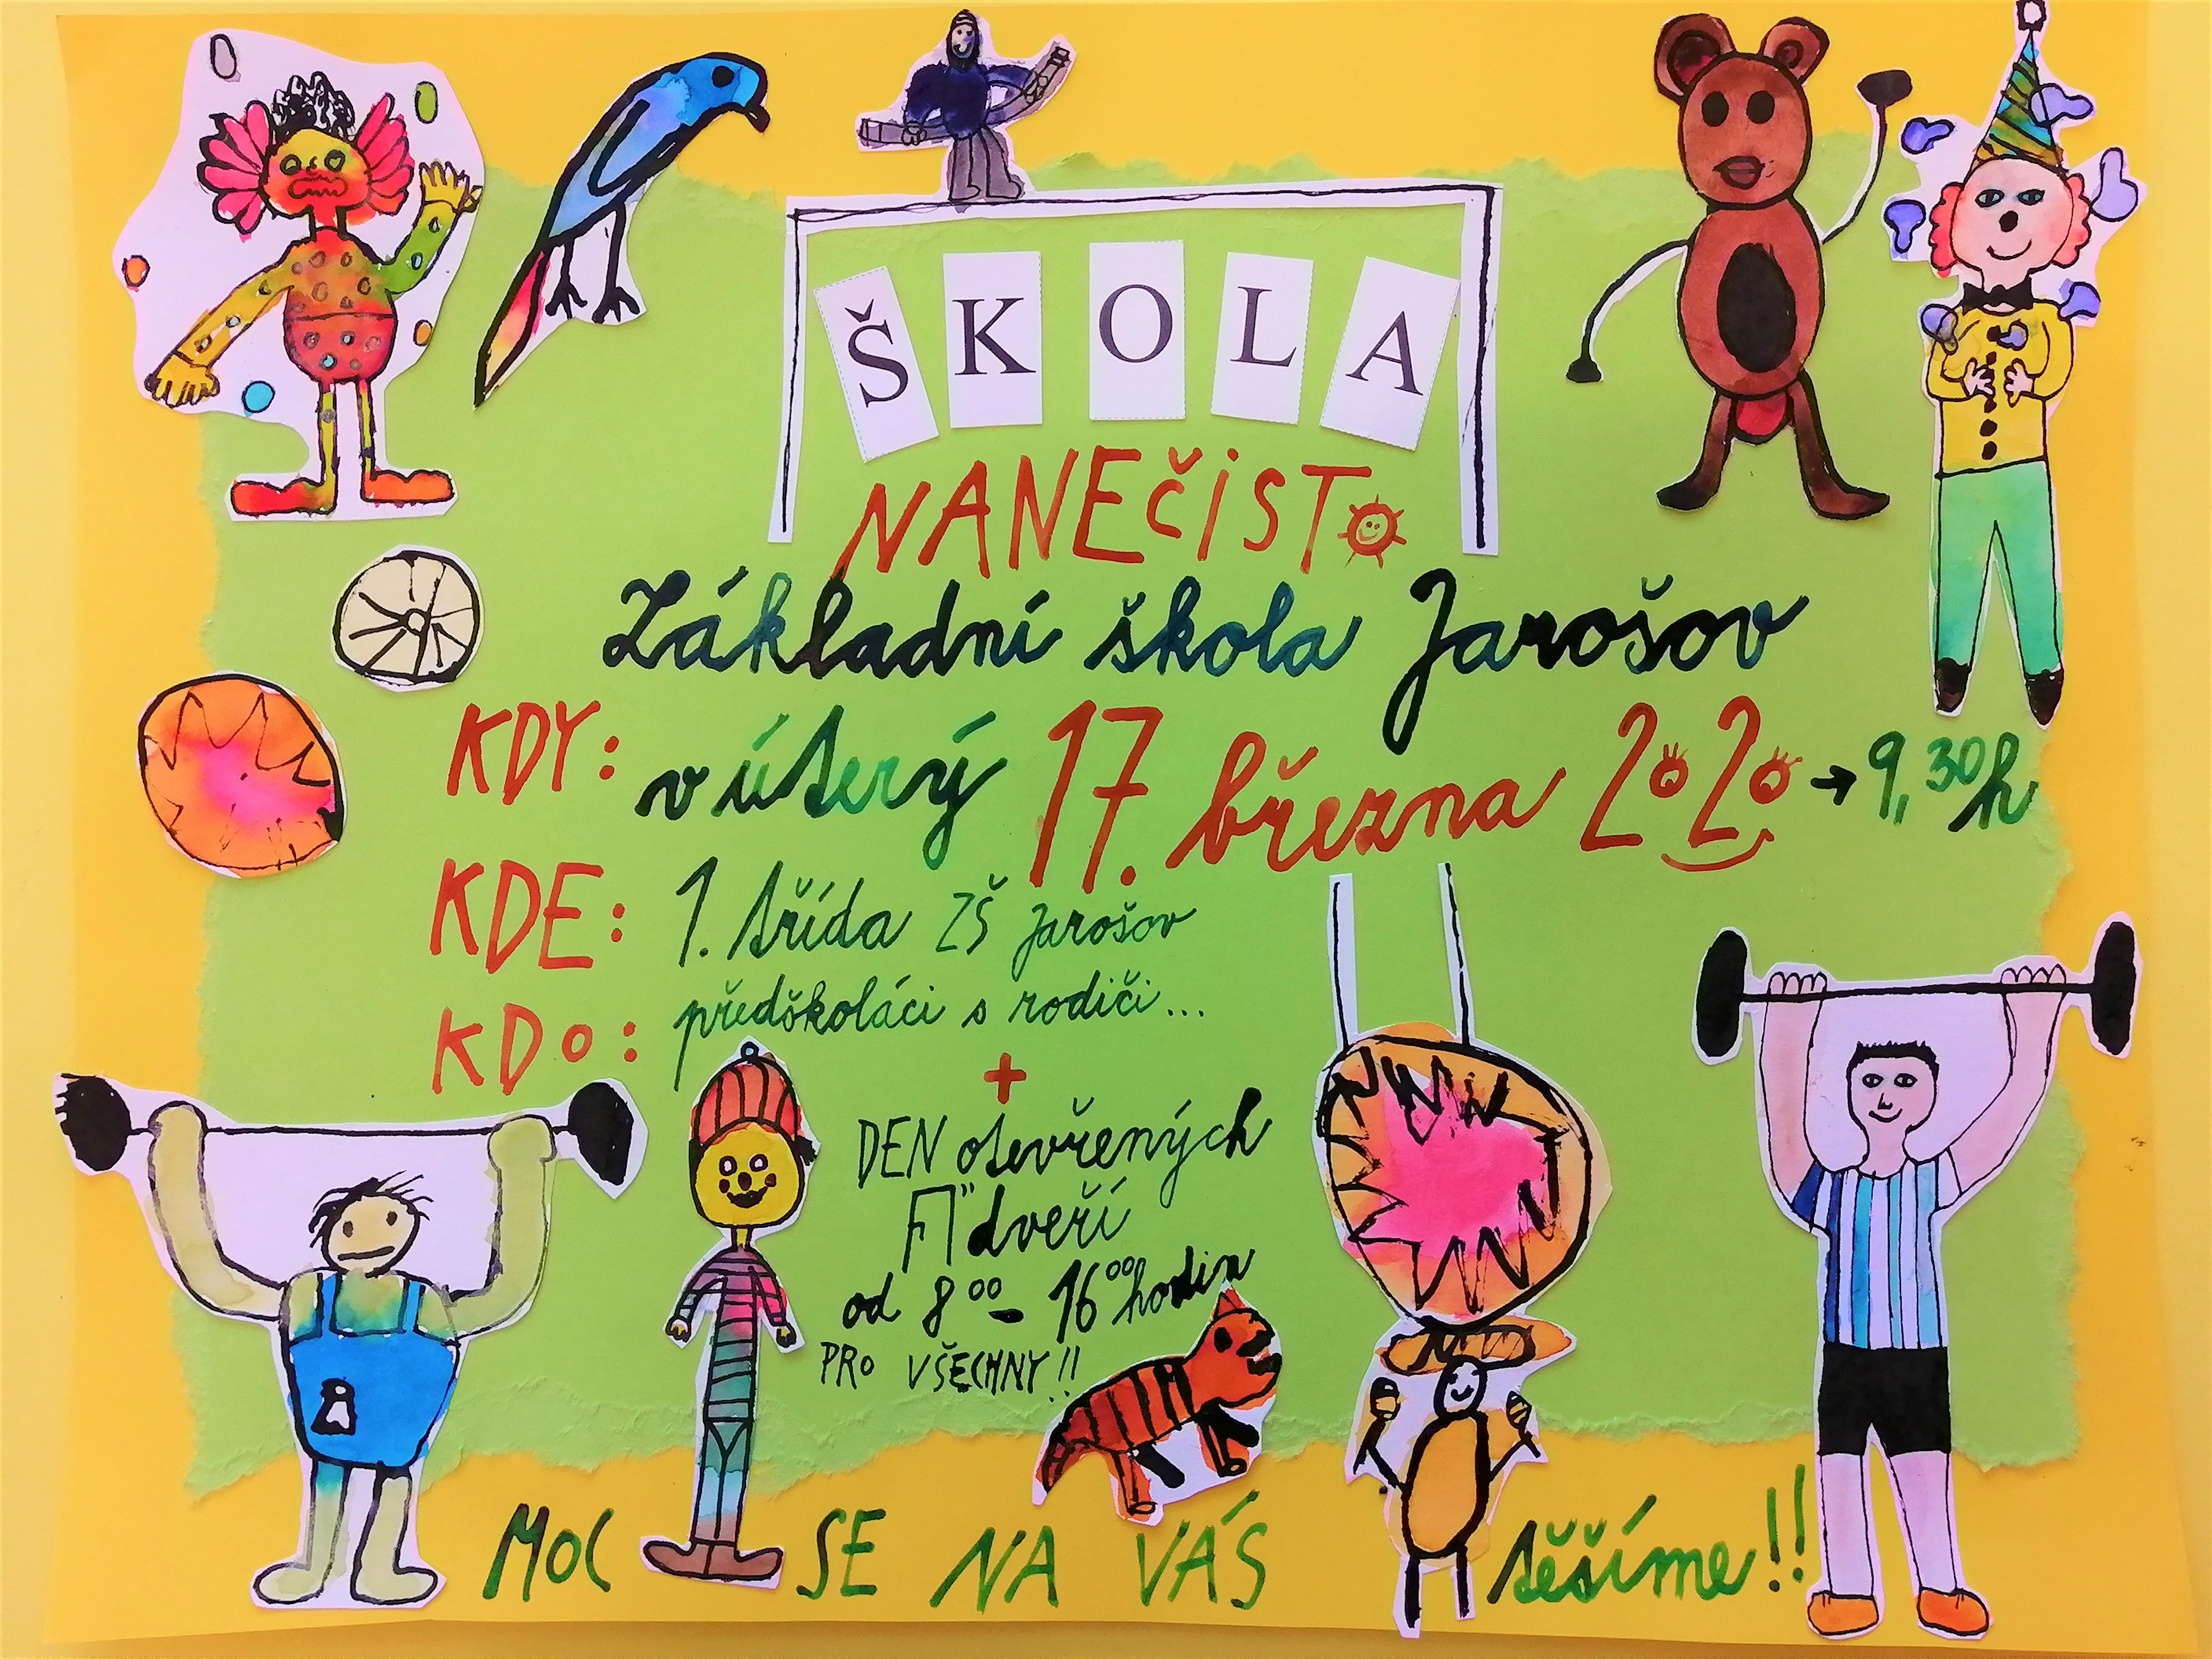 ŠKOLA
NANEČISTO
Základní škola Jarošov
KDY: v úterý 17. března 2020 → 9,30h
KDE: 1. třída ZŠ Jarošov
KDO: předškoláci s rodiči...
+
DEN otevřených
dveří
od 8 00 - 16 00 hodin
PRO VŠECHNY!!
MOC SE NA VÁS těšíme!!